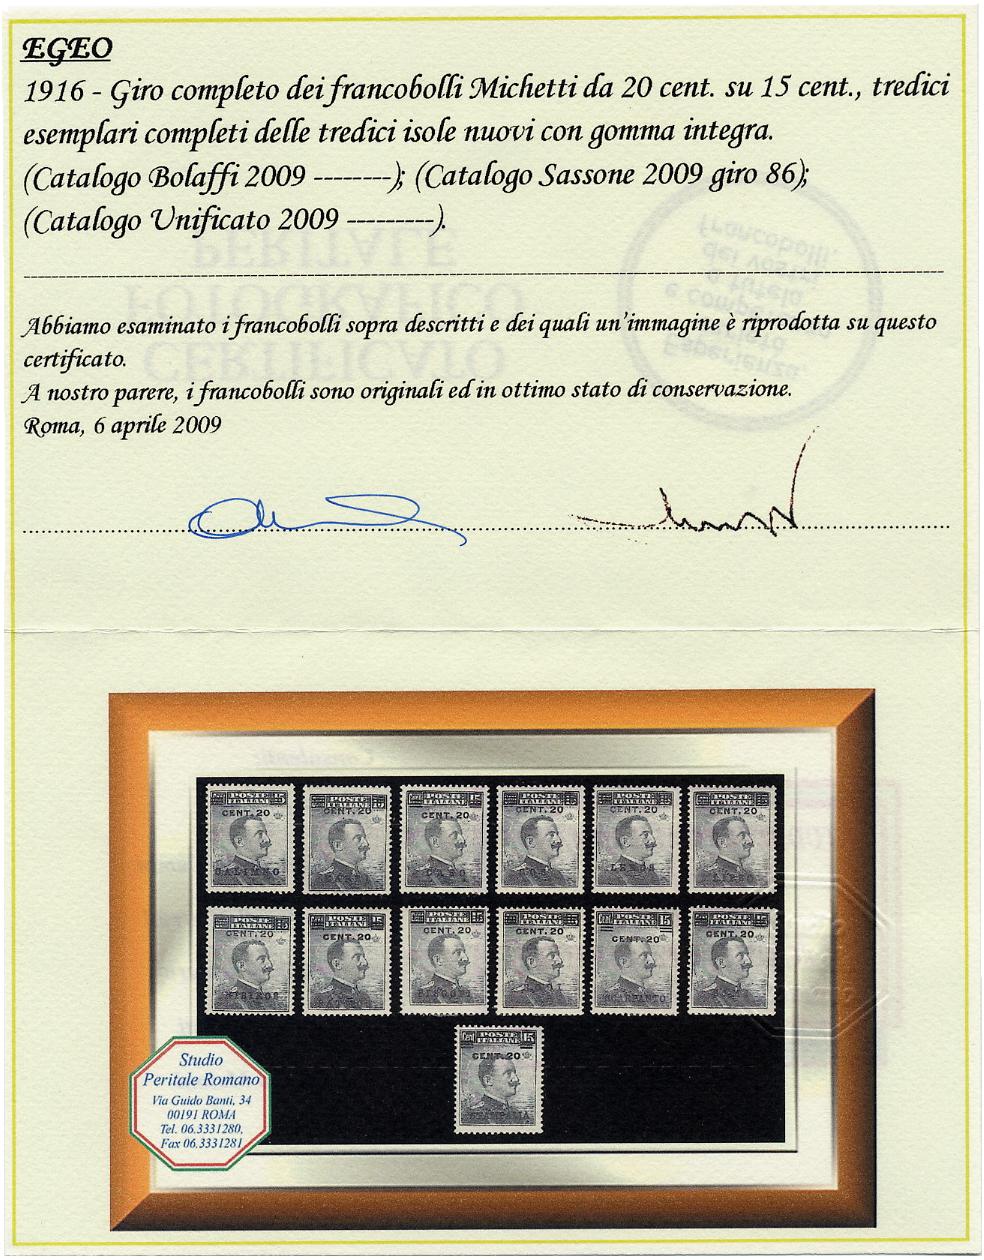 EGEO
1916 - Giro completo dei francobolli Michetti da 20 cent. su 15 cent., tredici
esemplari completi delle tredici isole nuovi con gomma integra.
(Catalogo Bolaffi 2009 --------); (Catalogo Sassone 2009 giro 86);
(Catalogo Unificato 2009 ---------).
Abbiamo esaminato i francobolli sopra descritti e dei quali un'immagine è riprodotta su questo
certificato.
A nostro parere, i francobolli sono originali ed in ottimo stato di conservazione.
Roma, 6 aprile 2009
POSTE ITALIANE CENT. 20 CALIMNO
POSTE ITALIANE CENT. 20
POSTE ITALIANE CENT. 20
POSTE ITALIANE CENT. 20
POSTE ITALIANE CENT. 20 LEROS
POSTE ITALIANE CENT. 20 LIPSO
POSTE ITALIANE CENT. 20 NISIROS
POSTE ITALIANE 15 CENT. 20
POSTE ITALIANE 15 CENT. 20
POSTE ITALIANE CENT. 20
POSTE ITALIANE 15 CENT. 20 SCARPANTO
POSTE ITALIANE 15 CENT. 20
POSTE ITALIANE 15 CENT. 20
Studio
Peritale Romano
Via Guido Banti, 34
00191 ROMA
Tel. 06.3331280,
Fax 06.3331281